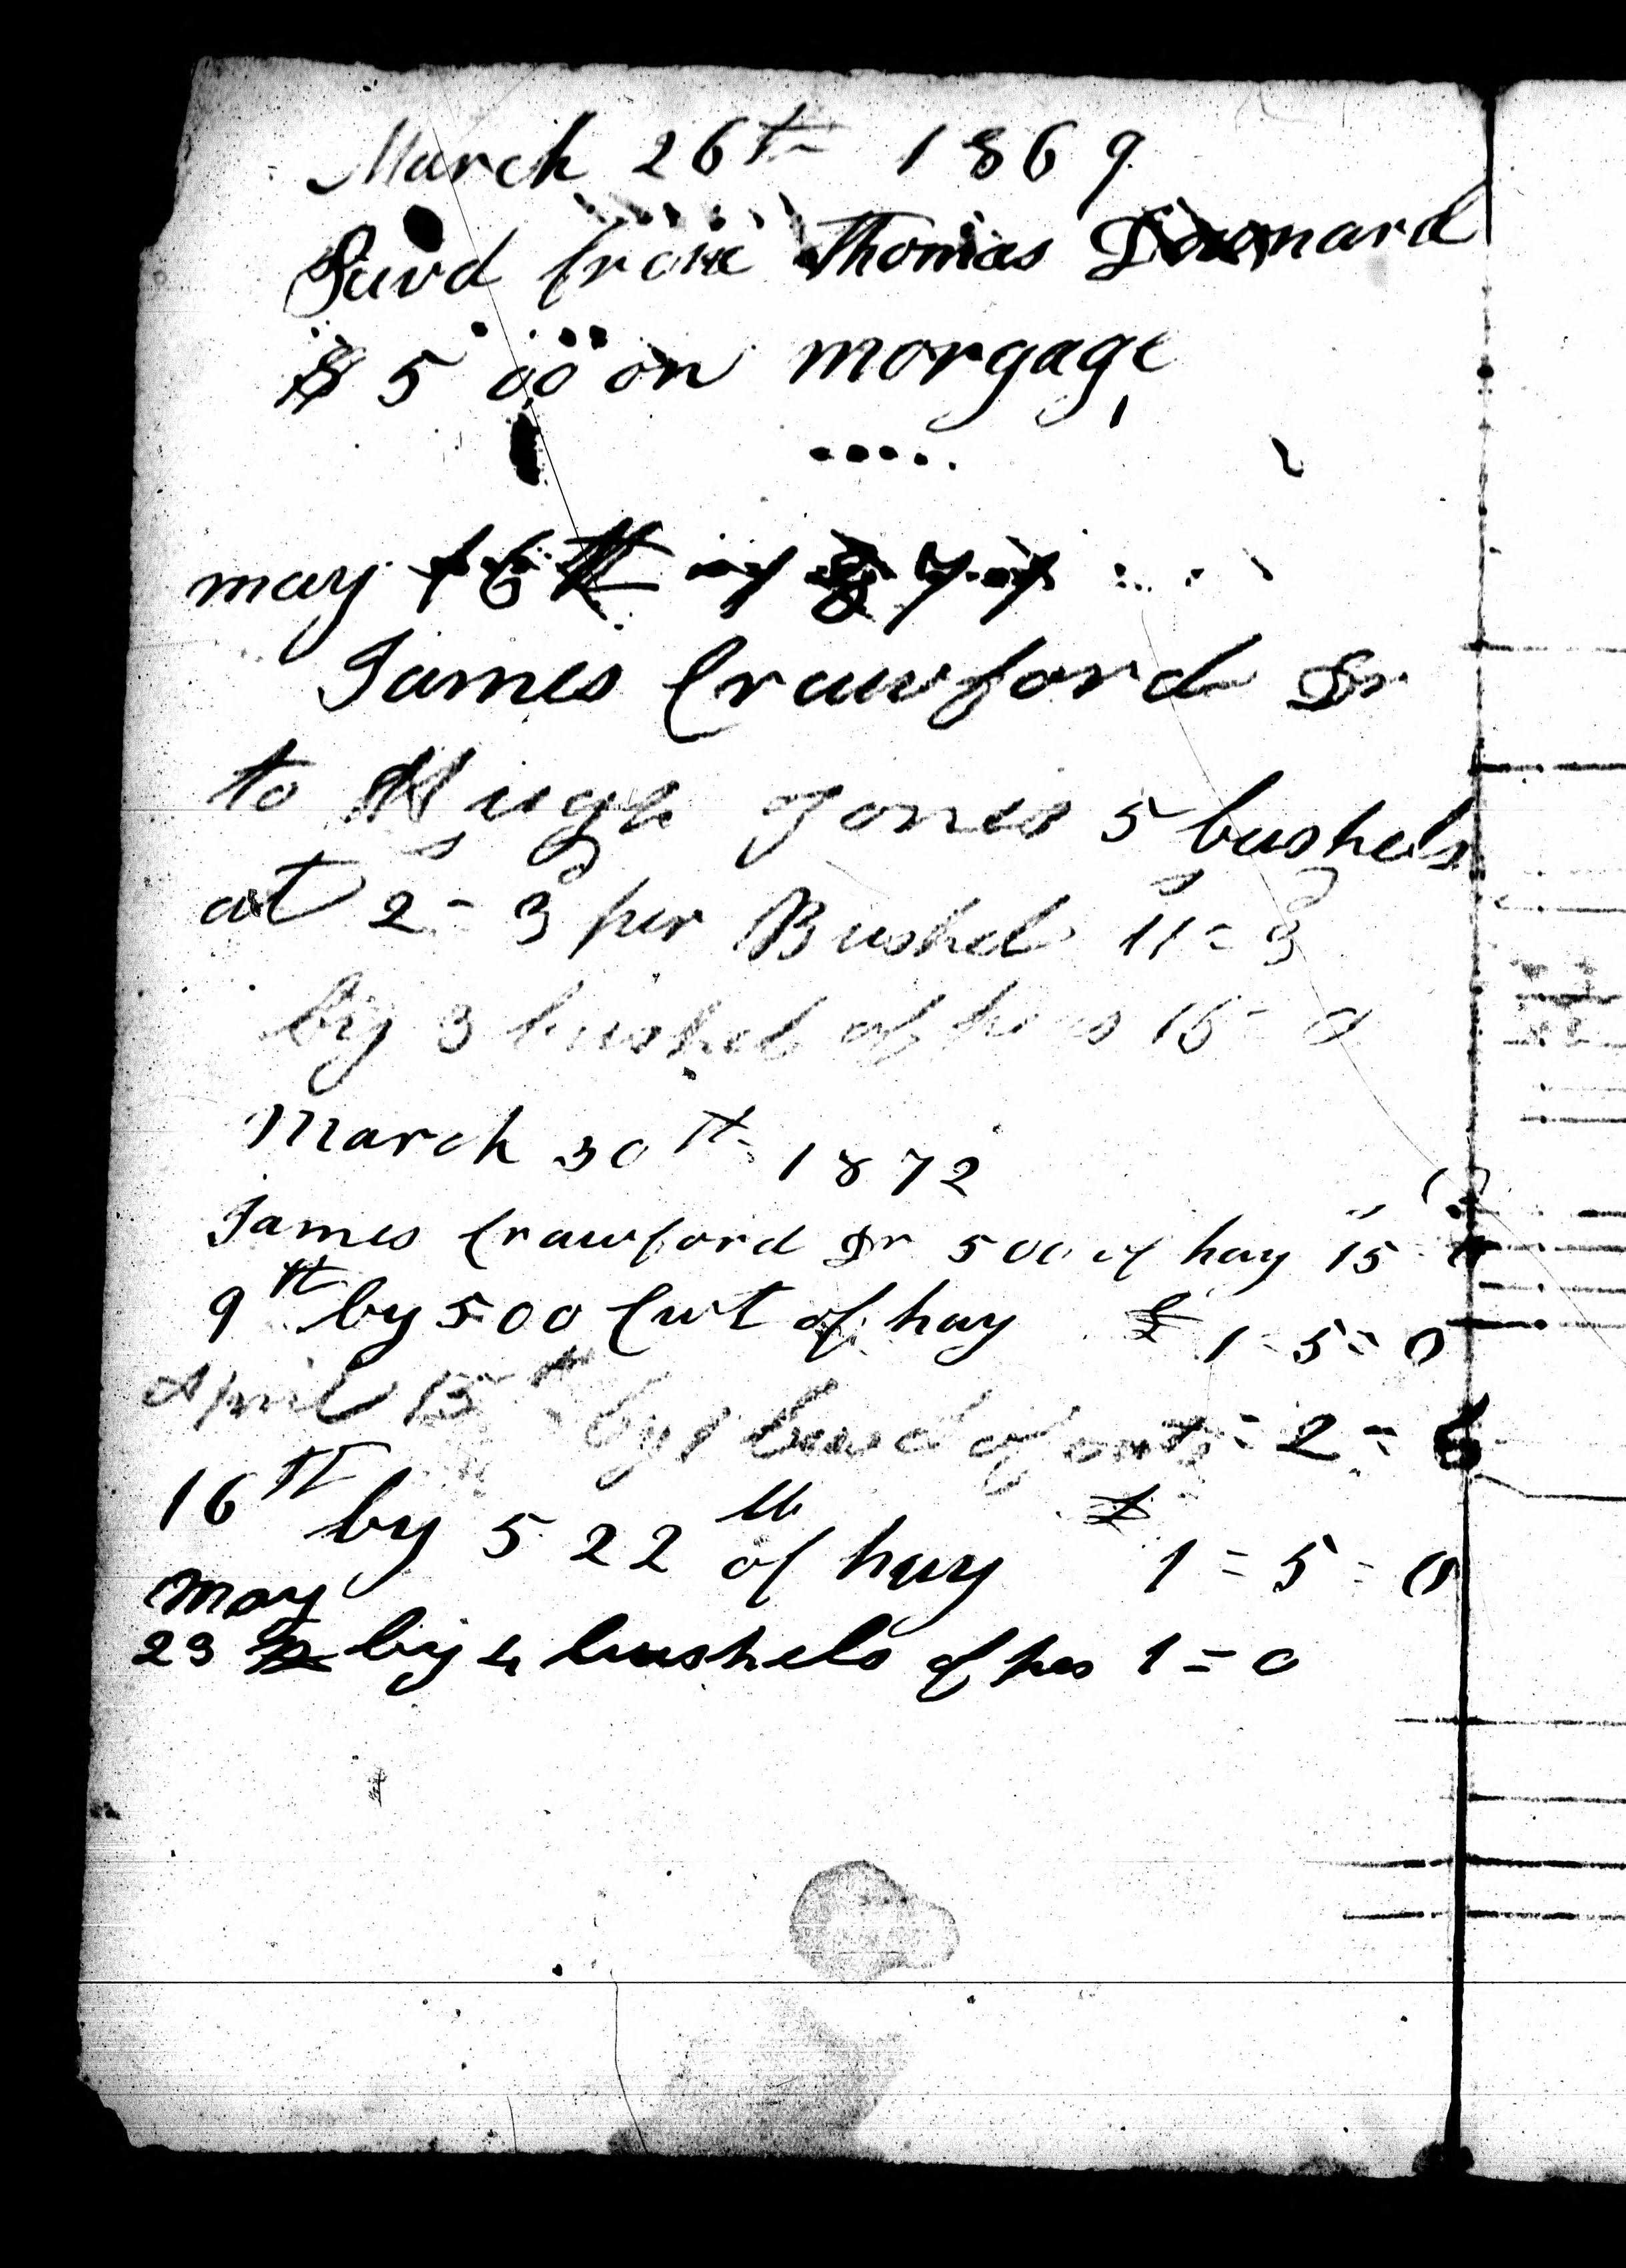 March 26th 1869
from Thomas
$ 5 00 on morgage
may 16th 1871
James Crawford Dr
to Hugh Jones 5 bushels
at 2 = 3 per Bushel 11 = 3
by 3 bushels of 15 = 0
March 30th 1872
James Crawford Dr 500 of hay 15 0
9th by 500 Cwt of hay £ 1 = 5 = 0
April 15th by 1 of oats = 2 = 6
16th by 522 lb of hay £ 1 = 5 = 0
may
23 by 4 bushels of 1 = 0